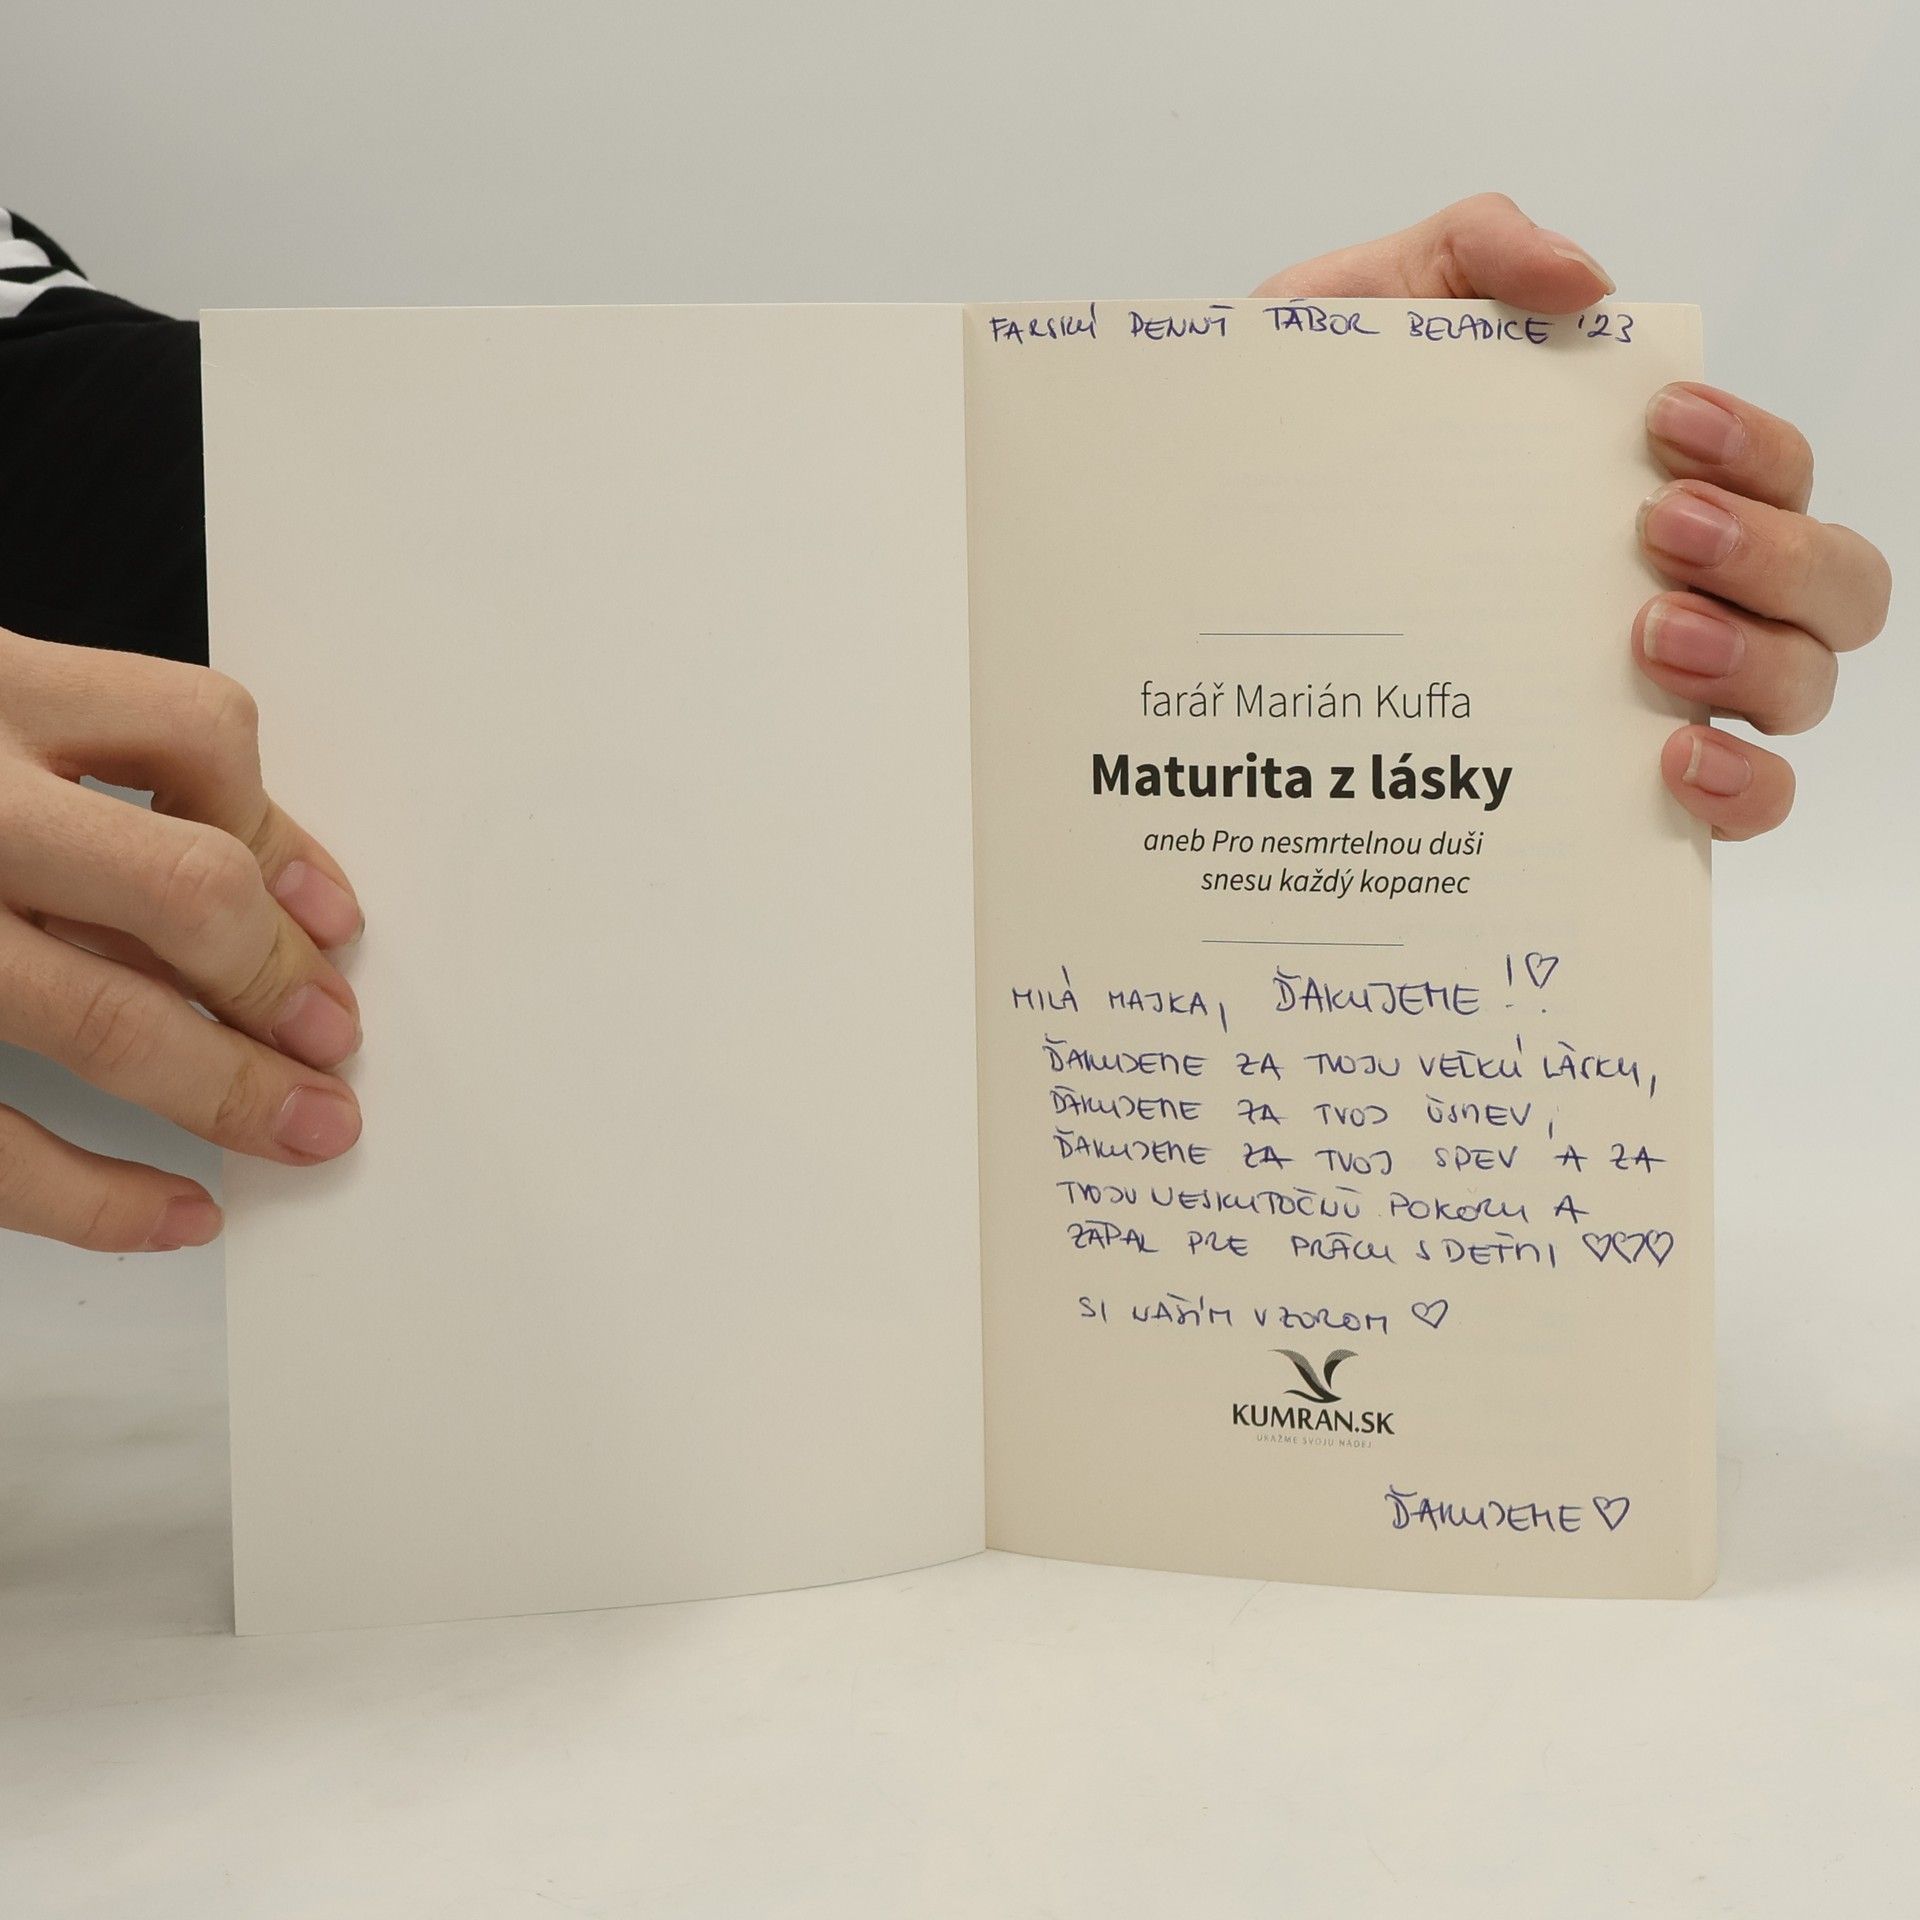 FARSKÝ DENNÝ TÁBOR BELADICE '23
farář Marián Kuffa
Maturita z lásky
aneb Pro nesmrtelnou duši
snesu každý kopanec
MILÁ MAJKA, ĎAKUJEME!! ♡
ĎAKUJEME ZA TVOJU VEĽKÚ LÁSKU,
ĎAKUJEME ZA TVOJ ÚSMEV,
ĎAKUJEME ZA TVOJ SPEV A ZA
TVOJU NESKUTOČNÚ POKORU A
ZÁPAL PRE PRÁCU S DEŤMI ♡♡♡
SI NAŠÍM VZOROM ♡
KUMRAN.SK
UKÁŽME SVOJU NÁDEJ
ĎAKUJEME ♡